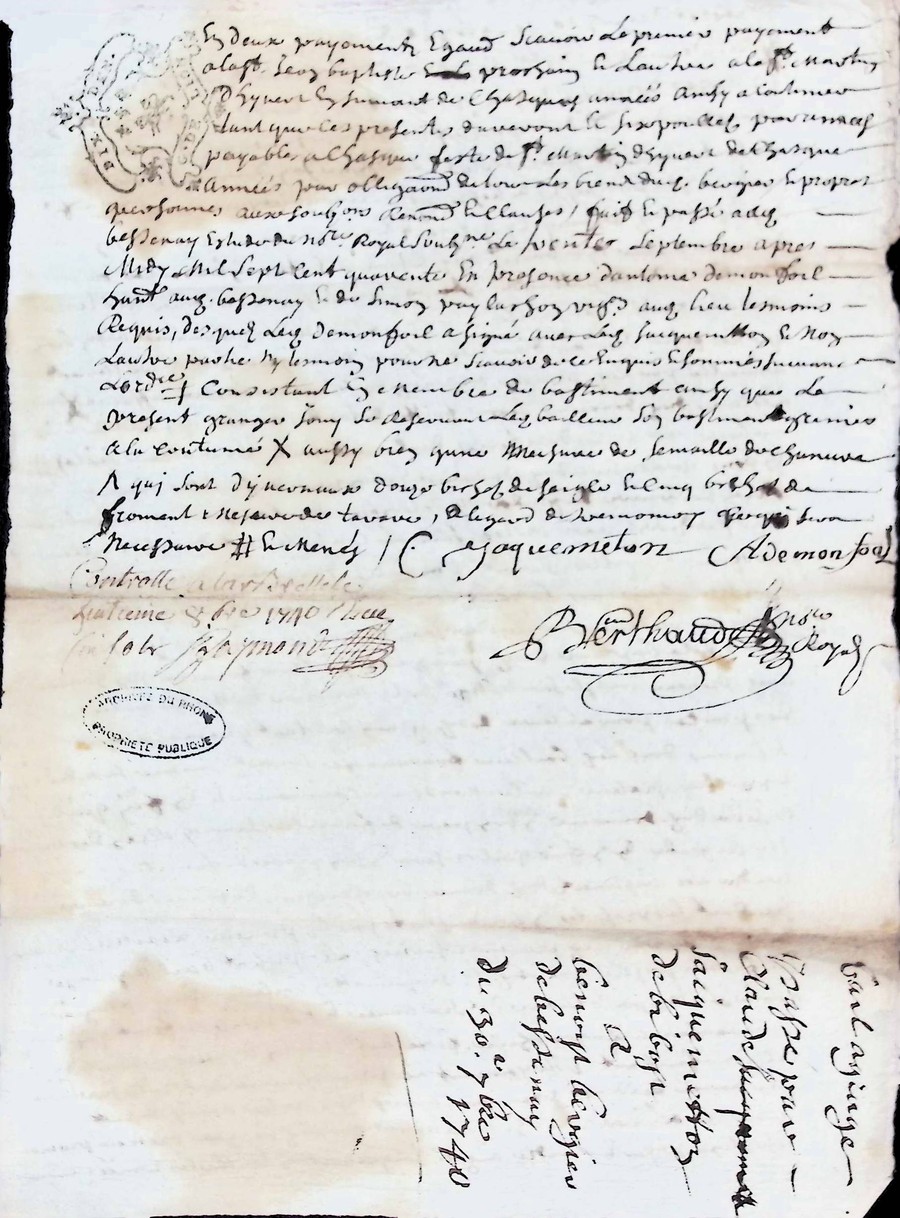 En deux payements Egaux Scavoir le premier payement
a la st Jean baptiste prochain le Lautre a la st Martin
d'hyver En suivant de Chasques années Ainsy a Continuer
tant que les presentes dureront le six poulles par annees
payables a Chasque feste de st Martin d'hyver de Chasque
Années par obligaōn de tous Les biens dud. bergier propres
personnes aux soubons Renonōn Clauses / fait le passé a
bessenay Estude du Nore Royal Soubné Le trente Septembre apres
Midy Mil Sept Cent quarente En presence d'antoine demonfoil
hant aud. bessenay le de Simon aud. lieu tesmoins
Requis, desquels Led. Demonfoil a signé avec Led. Jacquemetton le Non
Lautre partie Ny tesmoin pour ne Scavoir de ce Enquis le sommés suivant
L'ordce / Consistant En membre de bastiment ainsy que Le
present granger Jouy Se reservant Led. bailleur Son bastiment
a la Coutumé X aussy bien qune Mesure de semaille de chaneve
Λ qui sont d'yvernaux douze bichet de seigle le Cinq bichet de
froment
Necessaire # / C Jaquemeton Ademonfoil
Controllé a Larbrelle le
huitieme 8bre 1740
Raymond
Berthaud Nore Royal
ARCHIVES DU RHONE
PROPRIETE PUBLIQUE
Bail a grange
Passé par
Claude
Jaquemetton
de bibost
A
benoist bergier
de bessenay
du 30.e 7bre 1740